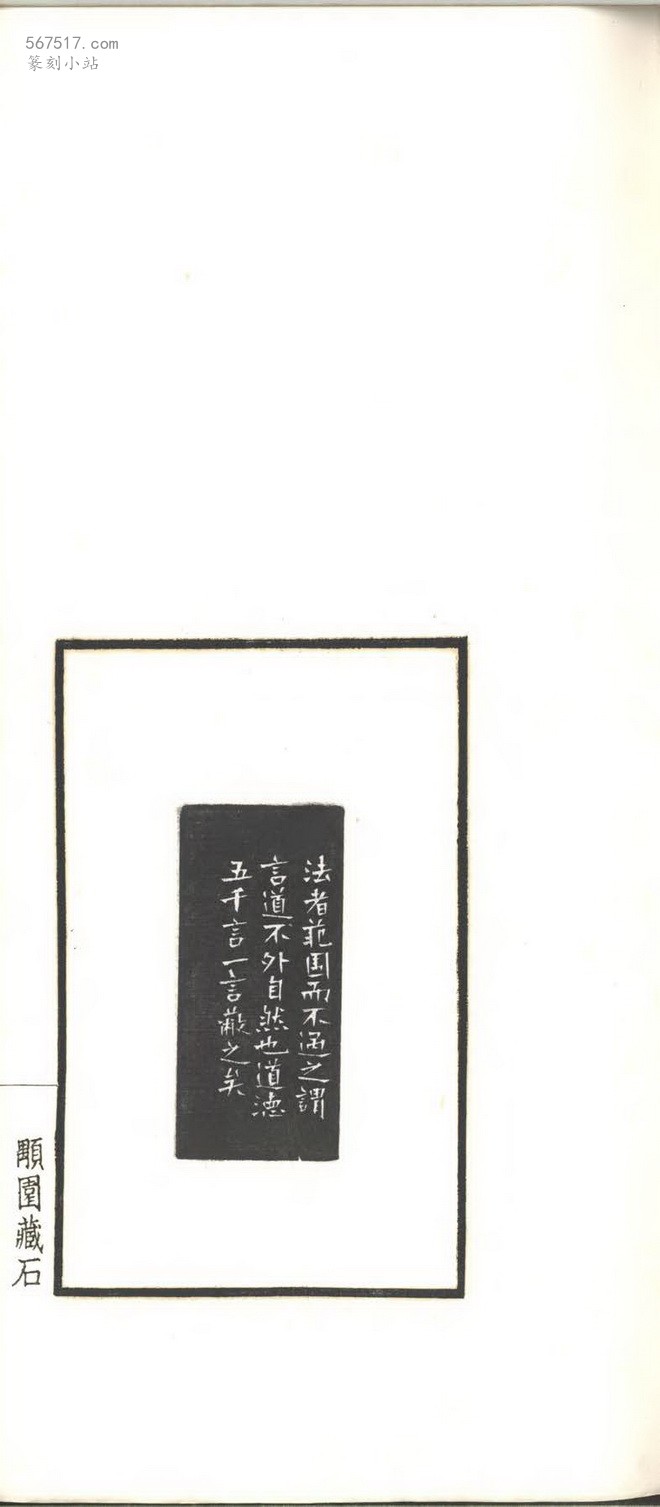 567517.com
篆刻小站
法者範囯而不過之謂
言道不外自然也道德
五千言一言蔽之矣
園藏石